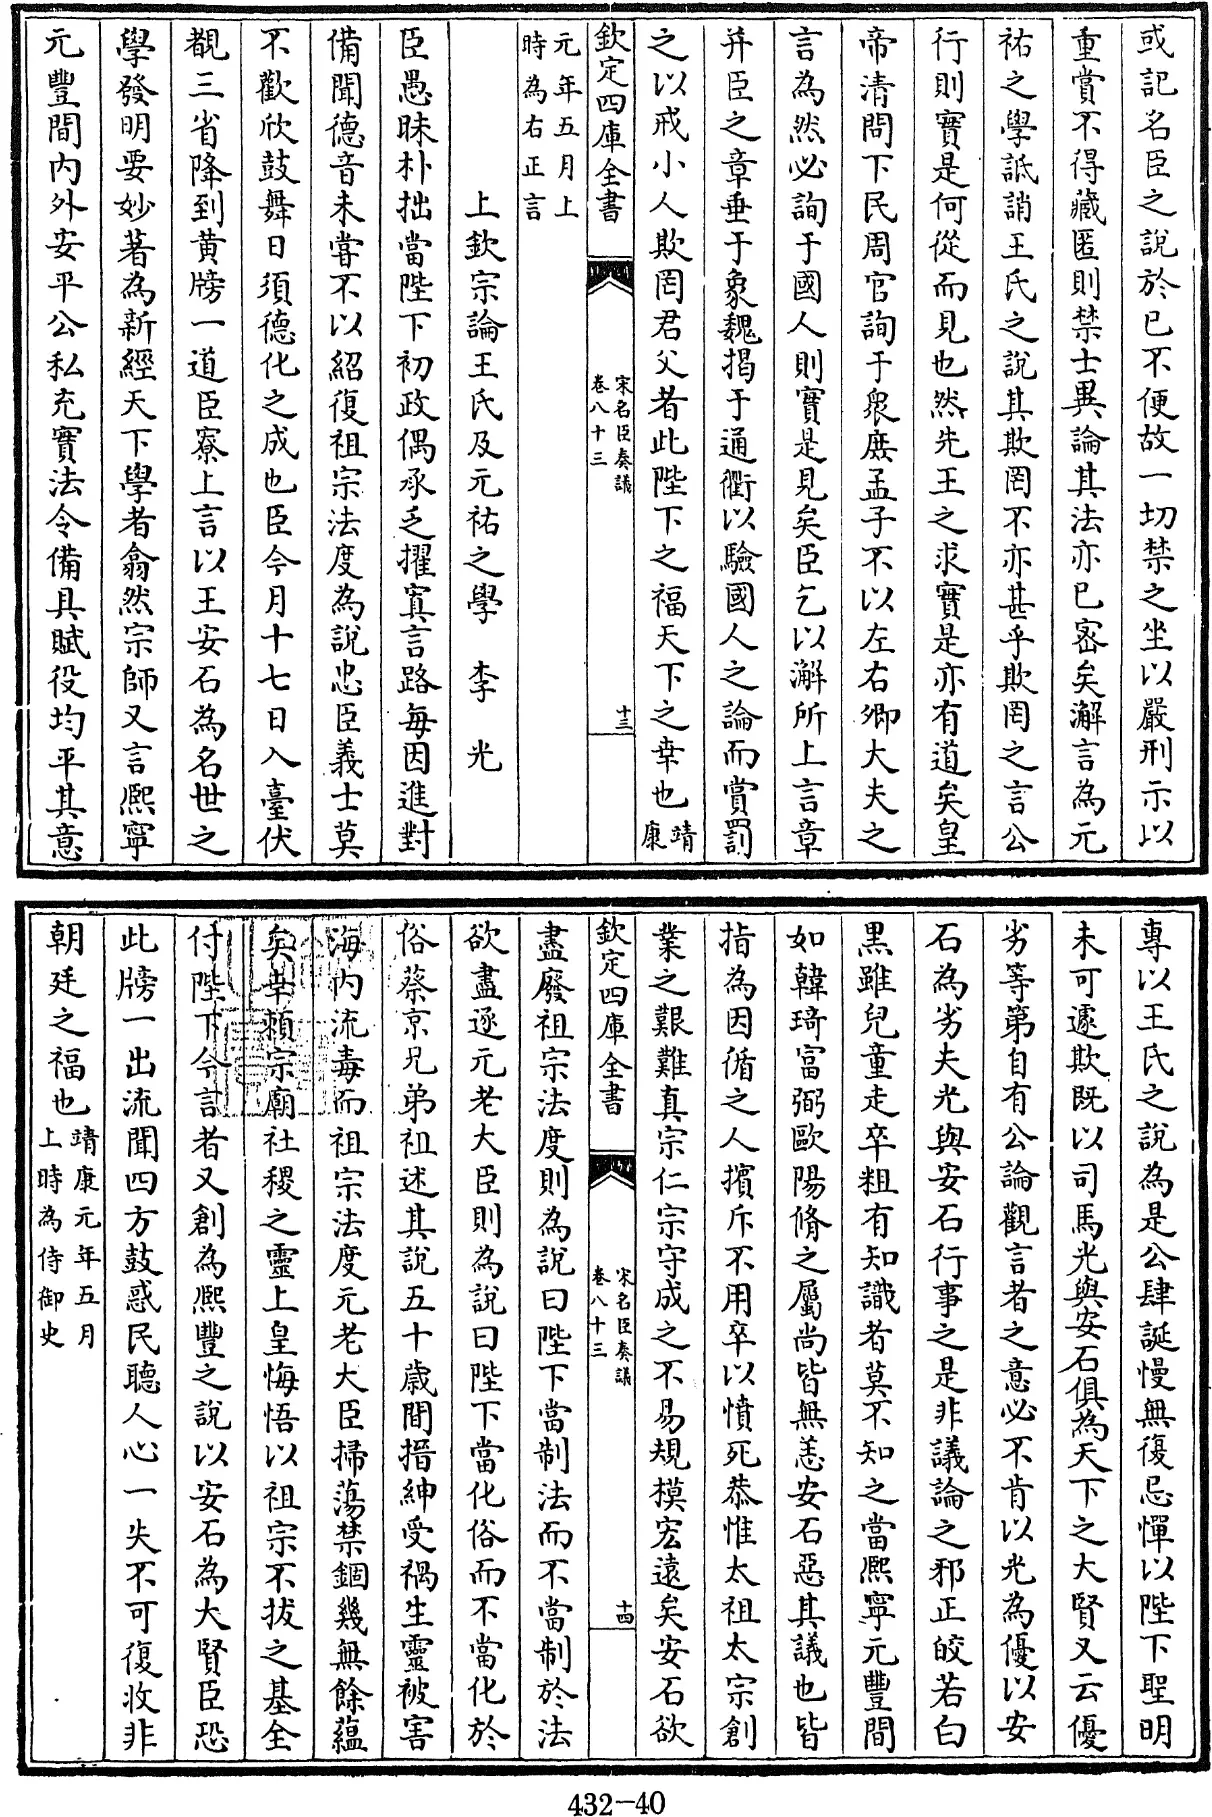 或記名臣之說於已不便故一切禁之坐以嚴刑示以
重賞不得藏匿則禁士異論其法亦已宻矣澥言為元
祐之學詆誚王氏之說其欺罔不亦甚乎欺罔之言公
行則實是何從而見也然先王之求實是亦有道矣皇
帝清問下民周官詢于衆庶孟子不以左右卿大夫之
言為然必詢于國人則實是見矣臣乞以澥所上言章
并臣之章垂于象魏揭于通衢以驗國人之論而賞罰
之以戒小人欺罔君父者此陛下之福天下之幸也靖康
欽定四庫全書
宋名臣奏議
卷八十三
十三
元年五月上
時為右正言
上欽宗論王氏及元祐之學 李光
臣愚昧朴拙當陛下初政偶承乏擢寘言路每因進對
備聞德音未嘗不以紹復祖宗法度為說忠臣義士莫
不歡欣鼓舞日須德化之成也臣今月十七日入臺伏
覩三省降到黄牓一道臣寮上言以王安石為名世之
學發明要妙著為新經天下學者翕然宗師又言熈寧
元豐間内外安平公私充實法令備具賦役均平其意
專以王氏之說為是公肆誕慢無復忌憚以陛下聖明
未可遽欺既以司馬光與安石俱為天下之大賢又云優
劣等第自有公論觀言者之意必不肯以光為優以安
石為劣夫光與安石行事之是非議論之邪正皎若白
黒雖兒童走卒粗有知識者莫不知之當熈寧元豐間
如韓琦富弼歐陽脩之屬尚皆無恙安石惡其議也皆
指為因循之人擯斥不用卒以憤死恭惟太祖太宗創
業之艱難真宗仁宗守成之不易規模宏遠矣安石欲
欽定四庫全書
宋名臣奏議
卷八十三
十四
盡廢祖宗法度則為說曰陛下當制法而不當制於法
欲盡逐元老大臣則為說曰陛下當化俗而不當化於
俗蔡京兄弟祖述其說五十歳間搢紳受禍生靈被害
海内流毒而祖宗法度元老大臣掃蕩禁錮幾無餘藴
矣幸頼宗廟社稷之靈上皇悔悟以祖宗不拔之基全
付陛下今言者又創為熈豐之說以安石為大賢臣恐
此牓一出流聞四方鼓惑民聽人心一失不可復收非
朝廷之福也靖康元年五月
上時為侍御史
432-40